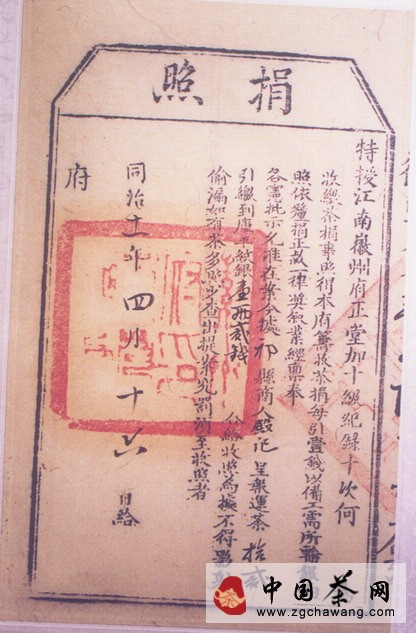 捐照
特授江南徽州府正堂加十級紀錄十次何
收繳茶捐事照得本府蕪收茶捐每引壹錢以備工需所
照依釐捐正款一律獎敘業經禀奉
各憲批示允准在案今據祁縣商人殷記呈報運茶拾貳
引繳到庫平紋銀壹兩貳錢合給收照為據不得影
偷漏如有茶多照少查出提究罰須至收照者
同治十一年四月十六日給
府
中国茶网
www.zgchawang.com